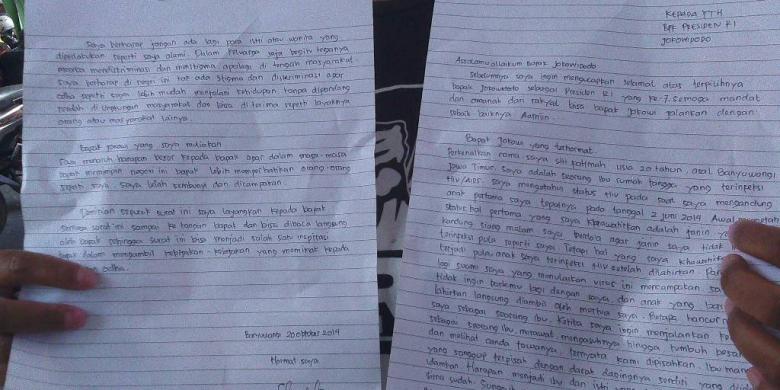 Saya berharap jangan ada lagi para istri atau wanita yang
diperlakukan seperti saya alami. Dalam keluarga saja begitu teganya
mendiskriminasi dan menstigma apalagi di tengah masyarakat
Saya berharap di negeri ini tak ada stigma dan diskriminasi agar
odha seperti saya lebih mudah menjalani kehidupan tanpa dipandang
rendah di lingkungan masyarakat dan bisa di terima seperti layaknya
orang atau masyarakat lainya.
Bapak Jokowi yang saya muliakan
Saya menaruh harapan besar kepada bapak agar dalam masa-masa
bapak memimpin negeri ini bapak lebih memperhatikan orang-orang
seperti saya. Saya lelah sembunyi dan dicampakan.
Demikian sepucuk surat ini saya layangkan kepada bapak
Semoga surat ini sampai ke tangan bapak dan bisa dibaca langsung
oleh bapak sehingga surat ini bisa menjadi salah satu inspirasi
bapak dalam mengambil kebijakan-kebijakan yang memihak kepada
odha.
Banyuwangi 20 oktober 2014
Hormat saya
KEPADA YTH
BPK PRESIDEN RI
JOKOWIDODO
Assalamu'alaikum Bapak Jokowidodo
Sebelumnya saya ingin mengucapkan selamat atas terpilihnya
bapak Jokowidodo sebagai Presiden RI yang ke-7. Semoga mandat
dan amanat dari rakyat bisa bapak Jokowi jalankan dengan
sebaik baiknya Aamiin.
Bapak Jokowi yang terhormat.
Perkenalkan nama saya Siti Fatimah usia 20 tahun, asal Banyuwangi
Jawa Timur. Saya adalah seorang ibu rumah tangga yang terinfeksi
HIV/AIDS. Saya mengetahui status HIV pada saat saya mengandung
anak pertama saya tepatnya pada tanggal 2 Juni 2014. Awal
status hal pertama yang saya khawatirkan adalah janin
kandung siang malam saya berdo'a agar janin saya tidak
terinfeksi pula seperti saya. Tetapi hal yang saya
terjadi pula, anak saya terinfeksi HIV setelah dilahirkan.
lagi suami saya yang menularkan virus ini mencampakan
tidak ingin bertemu lagi dengan saya. dan anak yang
lahirkan langsung diambil oleh mertua saya. Betapa hancur
saya sebagai seorang ibu. Ketika saya ingin menjalankan
sebagai seorang ibu, merawat, mengasuhnya hingga tumbuh besar
dan melihat canda tawanya, ternyata kami dipisahkan. Ibu mana
yang sanggup terpisah dengan darah dagingnya sendiri, yang
idamkan. Harapan menjadi ibu dan istri yang
sirna sudah.